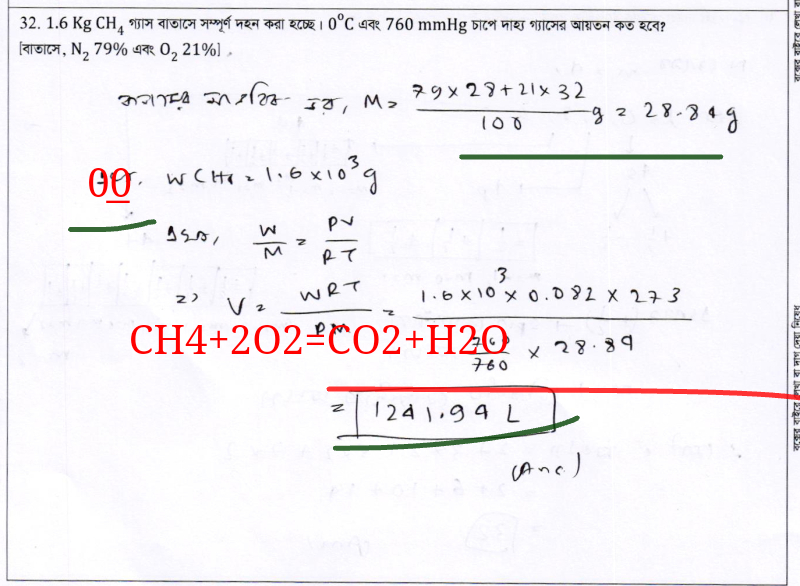 32. 1.6 Kg CH₄ গ্যাস বাতাসে সম্পূর্ণ দহন করা হচ্ছে। 0°C এবং 760 mmHg চাপে দাহ্য গ্যাসের আয়তন কত হবে?
[বাতাসে, N₂ 79% এবং O₂ 21%]
ভর, M = (79 × 28 + 21 × 32) / 100 g = 28.84 g
00
W CH₄ = 1.6 × 10³ g
W/M = PV/RT
=> V = WRT/PM = (1.6 × 10³ × 0.082 × 273) / (760/760 × 28.84)
CH4+2O2=CO2+H2O
= 1241.94 L
(Ans)